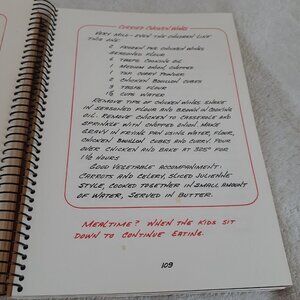 CURRIED CHICKEN WINGS
VERY MILD - EVEN THE CHILDREN LIKE
THIS ONE:
2 DOZEN PER CHICKEN WINGS
SEASONED FLOUR
4 TBSPS COOKING OIL
1 MEDIUM ONION, CHOPPED
1 TSP CURRY POWDER
2 CHICKEN BOUILLON CUBES
3 TBSPS FLOUR
1½ CUPS WATER
REMOVE TIPS OF CHICKEN WINGS, SHAKE
IN SEASONED FLOUR AND BROWN IN COOKING
OIL. REMOVE CHICKEN TO CASSEROLE AND
SPRINKLE WITH CHOPPED ONION. MAKE
GRAVY IN FRYING PAN USING WATER, FLOUR,
CHICKEN BOUILLON CUBES AND CURRY. POUR
OVER CHICKEN AND BAKE AT 325° FOR
1½ HOURS
GOOD VEGETABLE ACCOMPANIMENT:
CARROTS AND CELERY, SLICED JULIENNE
STYLE, COOKED TOGETHER IN SMALL AMOUNT
OF WATER, SERVED IN BUTTER.
MEALTIME? WHEN THE KIDS SIT
DOWN TO CONTINUE EATING.
109